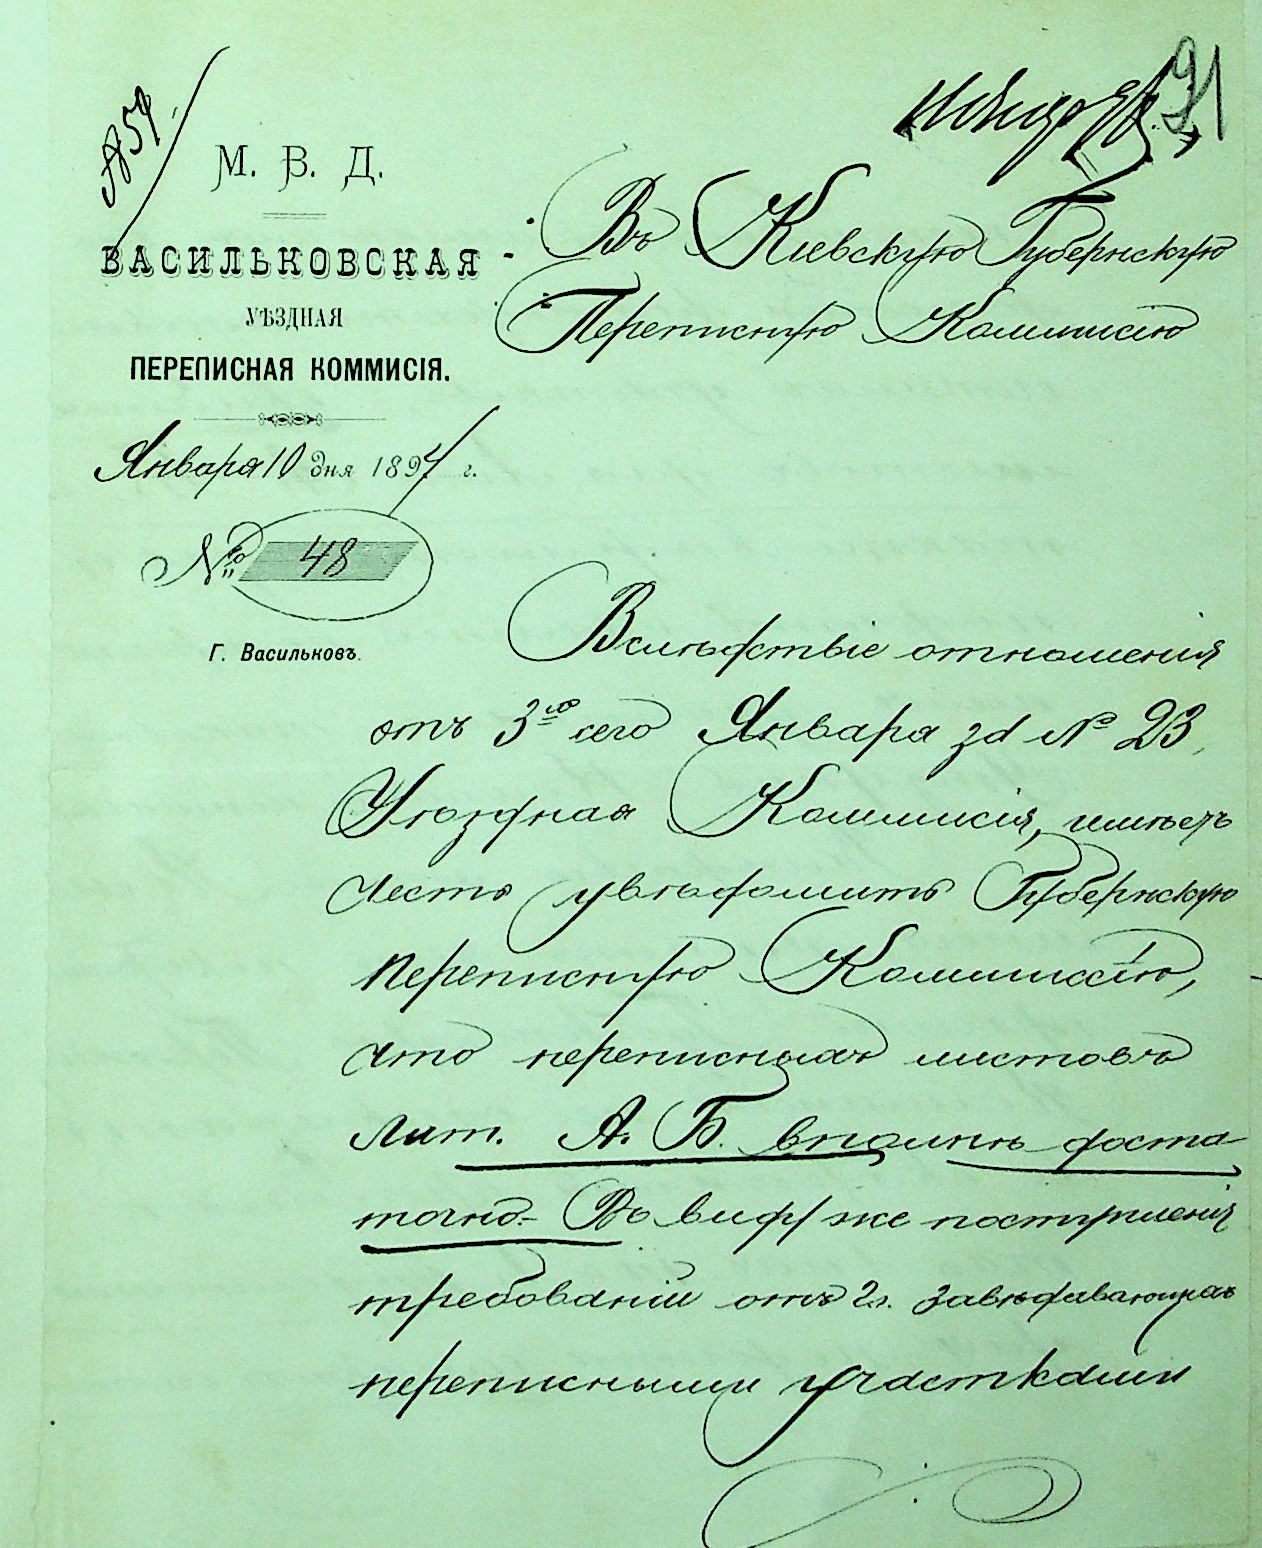 91
№ 59.
М. В. Д.
ВАСИЛЬКОВСКАЯ
УѢЗДНАЯ
ПЕРЕПИСНАЯ КОММИСІЯ.
Января 10 дня 1897 г.
№ 48
Г. Васильковъ.
Въ Кіевскую Губернскую
Переписную Коммисію
Вслѣдствіе отношенія
отъ 3го сего Января за № 23,
Уѣздная Коммисія, имѣетъ
честь увѣдомить Губернскую
Переписную Коммиссію,
что переписныхъ листовъ
Лит. А. Б. вполнѣ доста-
точно. Въ виду же поступленія
требованій отъ г.г. завѣдывающихъ
переписными участками